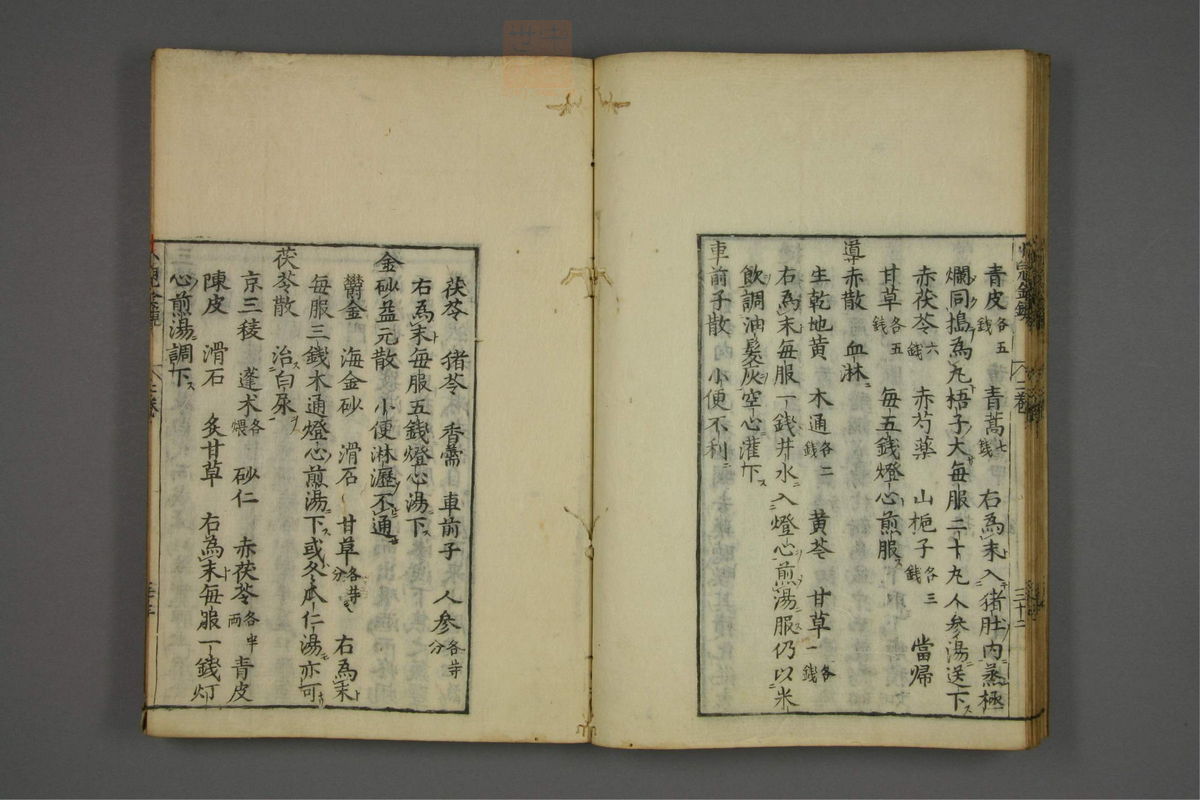 青皮各五錢 青蒿七錢 右為末入猪肚内蒸極
爛同搗為丸梧子大毎服二十丸人參湯送下
赤茯苓六錢 赤芍薬 山梔子各三錢 當帰
甘草各五錢 毎五錢燈心煎服
導赤散 血淋
生乾地黄 木通各二錢 黄芩 甘草各一錢
右為末毎服一錢井水入燈心煎湯服仍以米
飲調油髮灰空心灌下
車前子散 小便不利
茯苓 猪苓 香薷 車前子 人参各等分
右為末毎服五錢燈心湯下
金砂益元散 小便淋瀝不通
鬱金 海金砂 滑石 甘草各等分 右為末
毎服三錢木通燈心煎湯下或冬瓜仁湯亦可
茯苓散 治白尿
京三稜 蓬术各煨 砂仁 赤茯苓各半両 青皮
陳皮 滑石 炙甘草 右為末毎服一錢灯
心煎湯調下